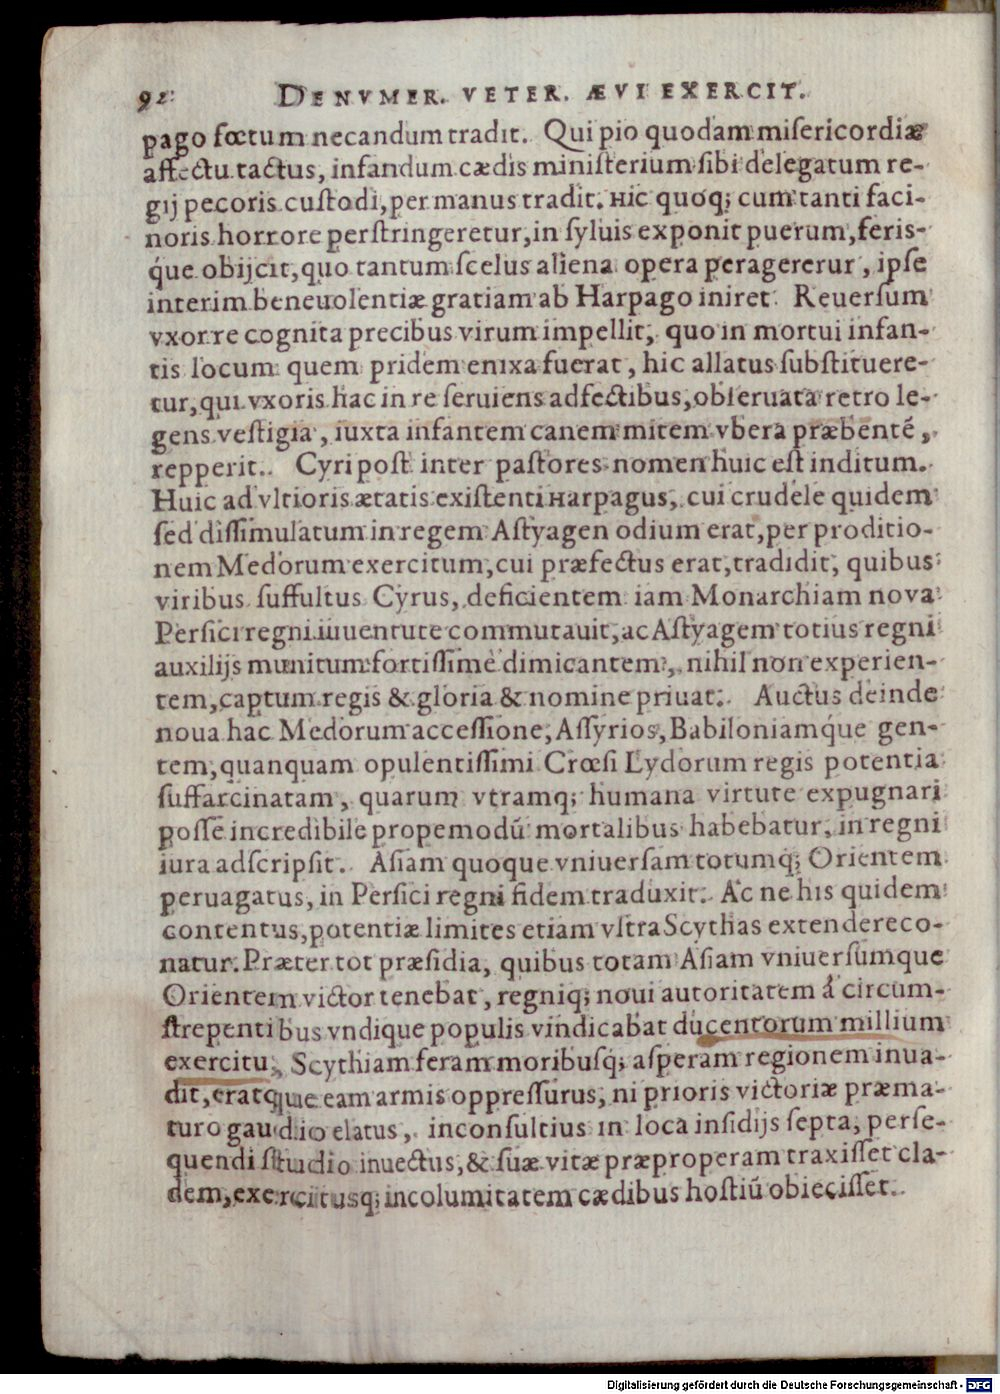 92 DE NVMER. VETER. ÆVI EXERCIT.
pago fœtum necandum tradit. Qui pio quodam miſericordiæ
affectu tactus, infandum cædis miniſterium ſibi delegatum re-
gij pecoris cuſtodi, per manus tradit. Hic quoq; cum tanti faci-
noris horrore perſtringeretur, in ſyluis exponit puerum, feris-
q́ue obijcit, quo tantum ſcelus aliena opera peragererur, ipſe
interim beneuolentiæ gratiam ab Harpago iniret. Reuerſum
vxor re cognita precibus virum impellit, quo in mortui infan-
tis locum quem pridem enixa fuerat, hic allatus ſubſtituere-
tur, qui vxoris hac in re ſeruiens adfectibus, obſeruata retro le-
gens veſtigia, iuxta infantem canem mitem vbera præbenté,
repperit. Cyri poſt inter paſtores nomen huic eſt inditum.
Huic ad vltioris ætatis exiſtenti Harpagus, cui crudele quidem
ſed diſſimulatum in regem Aſtyagen odium erat, per proditio-
nem Medorum exercitum, cui præfectus erat, tradidit, quibus
viribus ſuffultus Cyrus, deficientem iam Monarchiam noua
Perſici regni iuuentute commutauit, ac Aſtyagem totius regni
auxilijs munitum fortiſſimè dimicantem, nihil non experien-
tem, captum regis & gloria & nomine priuat. Auctus deinde
noua hac Medorum acceſſione, Aſſyrios, Babiloniamq́ue gen-
tem, quanquam opulentiſſimi Crœſi Lydorum regis potentia
ſuffarcinatam, quarum vtramq; humana virtute expugnari
poſſe incredibile propemodū mortalibus habebatur, in regni
iura adſcripſit. Aſiam quoque vniuerſam totumq́; Orientem
peruagatus, in Perſici regni fidem traduxit. Ac ne his quidem
contentus, potentiæ limites etiam vltra Scythas extendere co-
natur. Præter tot præſidia, quibus totam Aſiam vniuerſumque
Orientem victor tenebat, regniq; noui autoritatem á circum-
ſtrepentibus vndique populis vindicabat ducentorum millium
exercitu, Scythiam feram moribuſq; aſperam regionem inua-
dit, eratque eam armis oppreſſurus, ni prioris victoriæ præma-
turo gaudio elatus, inconſultius in loca inſidijs ſepta, perſe-
quendi ſtudio inuectus, & ſuæ vitæ præproperam traxiſſet cla-
dem, exercitusq; incolumitatem cædibus hoſtiū obieciſſet.
Digitalisierung gefördert durch die Deutsche Forschungsgemeinschaft - DFG